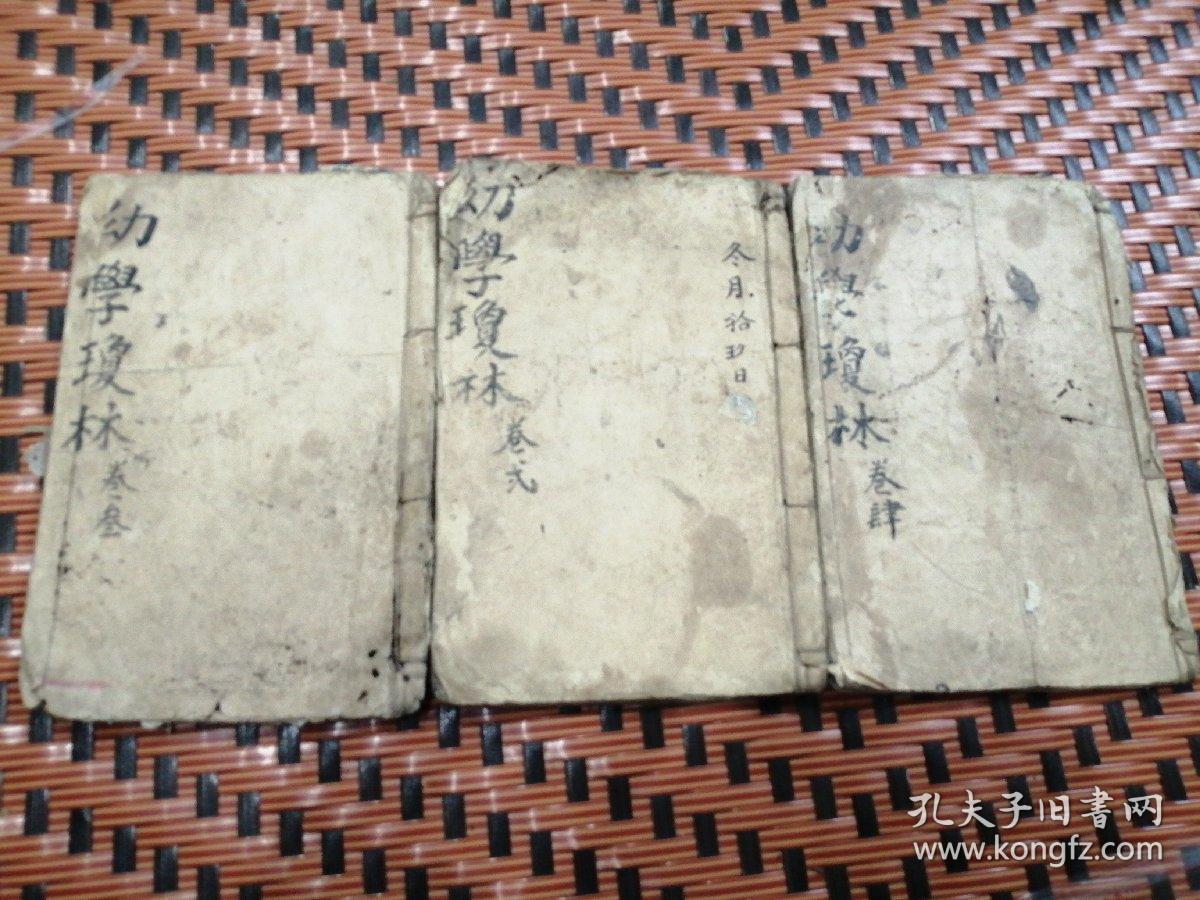 幼學瓊林
卷叁
幼學瓊林
卷弍
冬月拾玖日
幼學瓊林
卷肆
孔夫子旧书网
www.kongfz.com